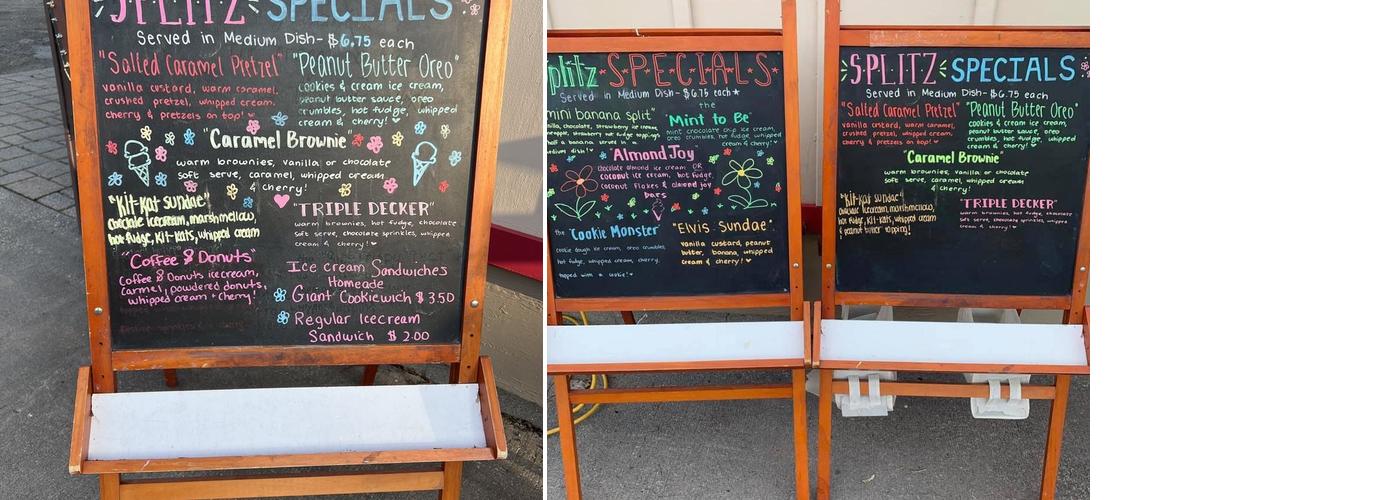 SPLITZ SPECIALS
Served in Medium Dish- $6.75 each
"Salted Caramel Pretzel"
vanilla custard, warm caramel,
crushed pretzel, whipped cream,
cherry & pretzels on top! ♥
"Peanut Butter Oreo"
cookies & cream ice cream,
peanut butter sauce, oreo
crumbles, hot fudge, whipped
cream & cherry! ♥
"Caramel Brownie"
warm brownies, vanilla or chocolate
soft serve, caramel, whipped cream
& cherry!
"Kit-Kat sundae"
chocolate icecream, marshmellow,
hot fudge, Kit-Kats, whipped cream
"TRIPLE DECKER"
warm brownies, hot fudge, chocolate
soft serve, chocolate sprinkles, whipped
cream & cherry! ♥
"Coffee & Donuts"
Coffee & Donuts icecream,
carmel, powdered donuts,
whipped cream + cherry!
Ice cream Sandwiches
Homeade
Giant Cookiewich $3.50
Regular Icecream
Sandwich $2.00
Splitz SPECIALS
Served in Medium Dish- $6.75 each★
mini banana split"
vanilla, chocolate, strawberry ice cream,
pineapple, strawberry, hot fudge toppings,
half a banana served in a
medium dish! ♥
the
"Mint to Be"
mint chocolate chip ice cream,
oreo crumbles, hot fudge, whipped
cream & cherry! ♥
"Almond Joy"
chocolate almond ice cream OR
coconut ice cream, hot fudge,
coconut flakes & almond joy
bars
the "Cookie Monster"
cookie dough ice cream, oreo crumbles,
hot fudge, whipped cream, cherry,
topped with a cookie! ♥
"Elvis Sundae"
vanilla custard, peanut
butter, banana, whipped
cream & cherry! ♥
SPLITZ SPECIALS
Served in Medium Dish- $6.75 each
"Salted Caramel Pretzel"
vanilla custard, warm caramel,
crushed pretzel, whipped cream,
cherry & pretzels on top! ♥
"Peanut Butter Oreo"
cookies & cream ice cream,
peanut butter sauce, oreo
crumbles, hot fudge, whipped
cream & cherry! ♥
"Caramel Brownie"
warm brownies, vanilla or chocolate
soft serve, caramel, whipped cream
& cherry!
"Kit-Kat sundae"
chocolate icecream, marshmellow,
hot fudge, Kit-Kats, whipped cream
& peanut butter topping!
"TRIPLE DECKER"
warm brownies, hot fudge, chocolate
soft serve, chocolate sprinkles, whipped
cream & cherry! ♥